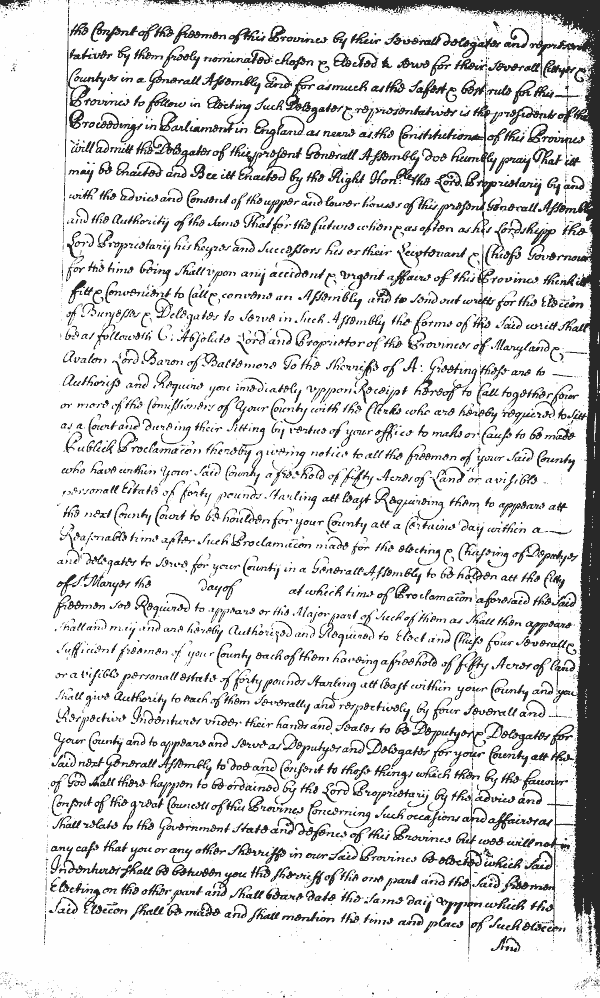 the Consent of the freemen of this Province by their Severall delegates and represen
tatives by them freely nominated chosen & Elected to serve for their Severall Cittyes &
Countyes in a Generall Assembly And for as much as the Safest & best rule for this
Province to follow in Electing Such Delegates & representatives is the presidents of the
Proceedings in Parliament in England as neere as the Constitution of this Province
will admitt the Delegates of this present Generall Assembly doe humbly pray That itt
may be Enacted and Bee itt Enacted by the Right Hon:ble the Lord Proprietary by and
with the advice and Consent of the upper and lower houses of this present Generall Assembly
and the Authority of the Same That for the future when & as often as his Lordshipp the
Lord Proprietary his heyres and Successors his or their Leiutenant & Chiefe Governour
for the time being Shall upon any accident & urgent affaires of this Province think itt
fitt & Convenient to Call & convene an Assembly and to send out writts for the Eleccon
of Burgesses & Delegates to Serve in Such Assembly the forme of the Said writt Shall
be as followeth C: Absolute Lord and Proprietor of the Provinces of Maryland &
Avalon Lord Baron of Baltemore To the Sherriffe of A: Greeting these are to
Authorise and Require you imediately uppon Receipt hereof to Call together four
or more of the Comissioners of Your County with the Clerke who are hereby required to sitt
as a Court and dureing their Sitting by vertue of your office to make or Cause to be made
Publick Proclamacon thereby giveing notice to all the freemen of your Said County
who have within Your Said County a freehold of fifty Acres of Land or a visible
personall Estate of forty pounds Starling att least Requireing them to appeare att
the next County Court to be houlden for your County att a Certaine day within a
Reasonable time after Such Proclamacon made for the electing & Chuseing of Deputyes
and delegates to Serve for your County in a Generall Assembly to be holden att the Citty
of St Maryes the day of at which time of Proclamacon aforesaid the Said
freemen soe Required to appeare or the Major part of Such of them as Shall then appeare
Shall and may and are hereby Authorized and Required to Elect and Chuse four Severall &
Sufficient freemen of your County each of them haveing a freehold of fifty Acres of land
or a visible personall estate of forty pounds Starling att least within your County and you
Shall give Authority to each of them Severally and respectively by four Severall and
Respective Indentures under their hands and Seales to be Deputyes & Delegates for
Your County and to appeare and Serve as Deputyes and Delegates for your County att the
Said next Generall Assembly to doe and Consent to those things which then by the favour
of God Shall there happen to be ordained by the Lord Proprietary by the advice and
Consent of the great Councell of this Province Concerning Such occasions and affaires as
Shall relate to the Government State and defence of this Province but wee will not in
any case that you or any other Sherriffe in our Said Province be elected which Said
Indentures Shall be between you the Sherriff of the one part and the Said freemen
Electing on the other part and Shall beare date the Same day uppon which the
Said Eleccon Shall be made and Shall mention the time and place of Such eleccon
And